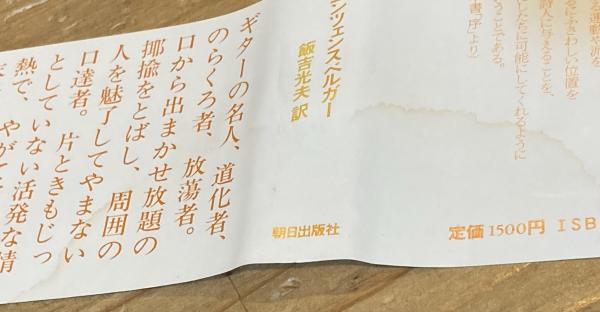 る運動や派を
るにふさわしい位置を
詩人に与えることを、
したちに可能にしてくれるように
うことである。
書「序」より)
ンツェンスベルガー
飯吉光夫 訳
朝日出版社
定価1500円 ISB
ギターの名人、道化者、
のらくろ者、放蕩者。
口から出まかせ放題の
揶揄をとばし、周囲の
人を魅了してやまない
口達者。片ときもじっ
としていない活発な情
熱で、やがて